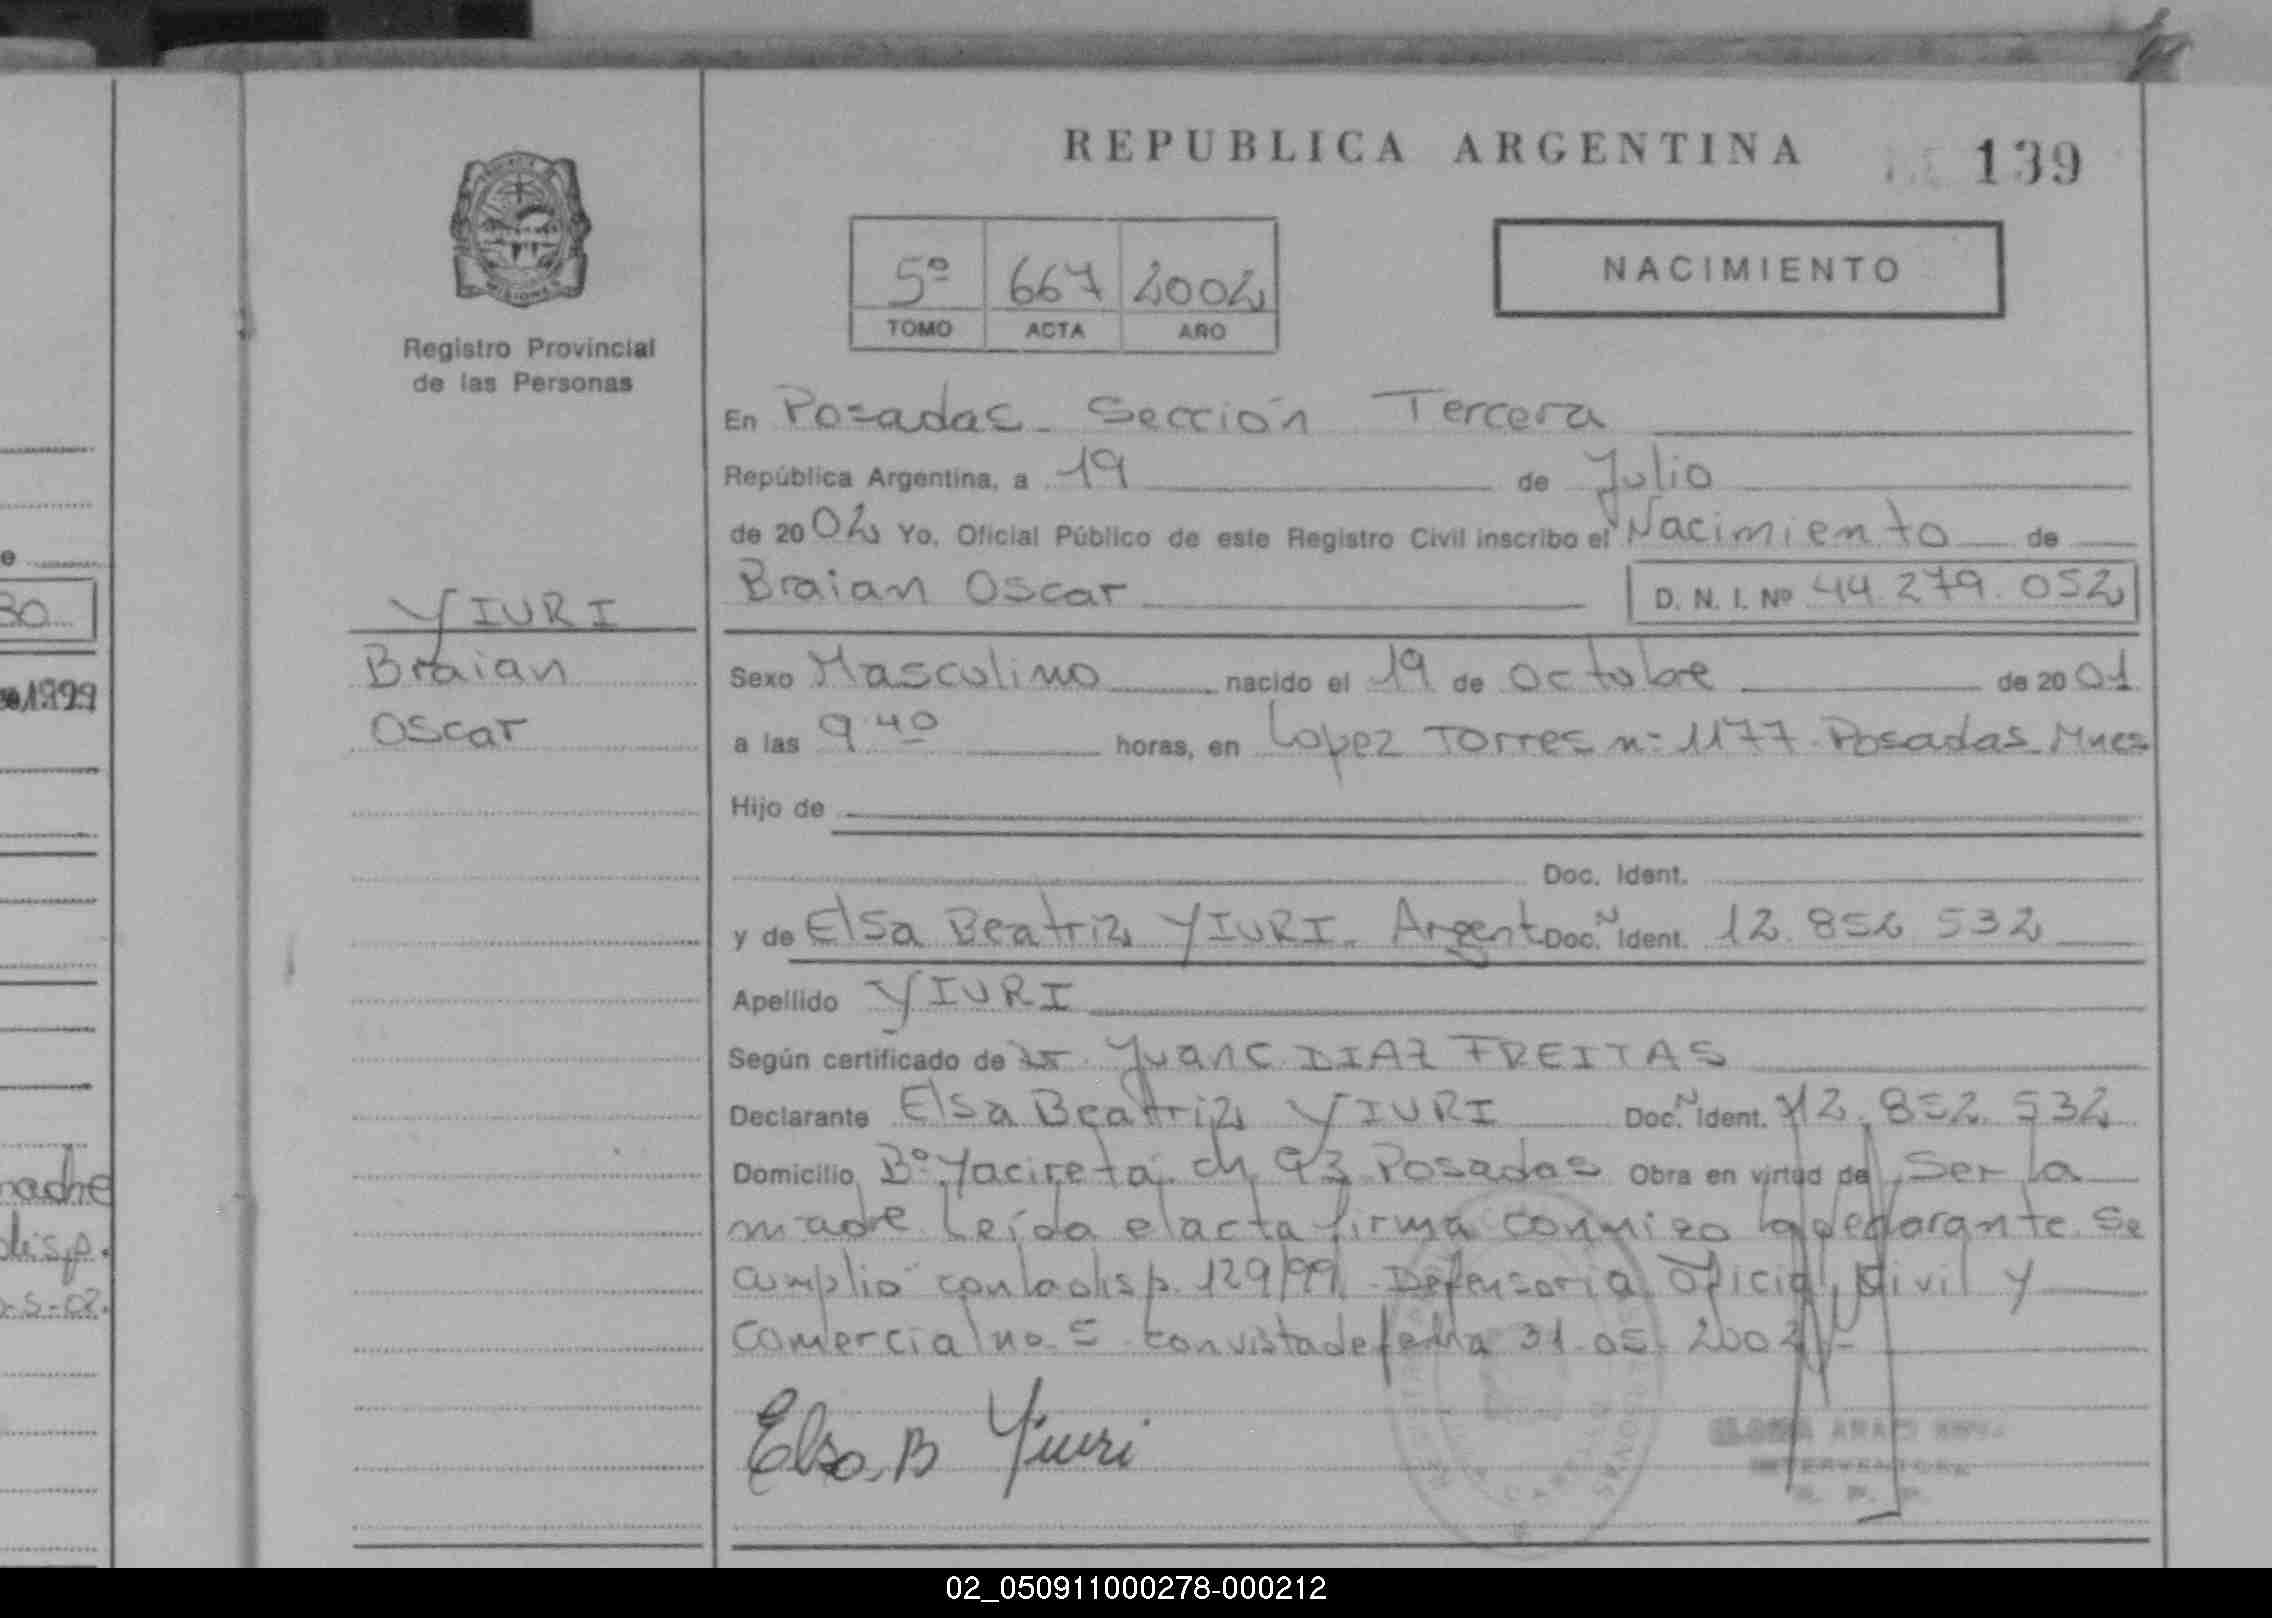 REPUBLICA ARGENTINA
139
5º 667 2002
TOMO ACTA AÑO
NACIMIENTO
MISIONES
Registro Provincial
de las Personas
YIURI
Braian
Oscar
En Posadas - Sección Tercera
República Argentina, a 19 de Julio
de 2002 Yo, Oficial Público de este Registro Civil inscribo el Nacimiento de
Braian Oscar D. N. I. Nº 44.279.052
Sexo Masculino nacido el 19 de Octubre de 2001
a las 9.40 horas, en Lopez Torres nº 1177. Posadas Mnes
Hijo de
Doc. Ident.
y de Elsa Beatriz YIURI. Argent Doc. N Ident. 12.852 532
Apellido YIURI
Según certificado de Juan C. DIAZ FREITAS
Declarante Elsa Beatriz YIURI Doc. N Ident. 12.852.532
Domicilio Bº Yacireta ch 93 Posadas Obra en virtud de Ser la
madre Leída el acta firma conmigo la declarante. Se
cumplio con la disp. 129/99. Defensoria Oficial Civil y
Comercial no 5 con vista de fecha 31.05.2002 -
Elsa B Yiuri
30
1999
madre
disp.
-5-02.
02_050911000278-000212